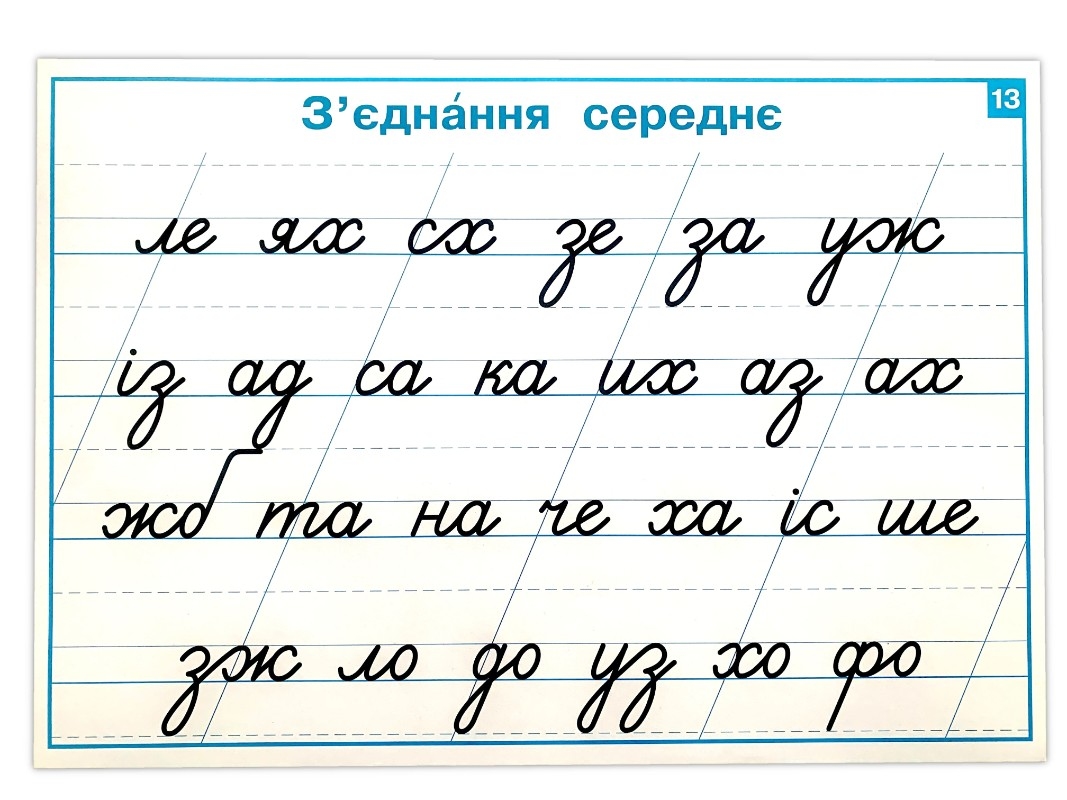 13
З’єдна́ння середнє
ле ях сх зе за уж
із ад са ка их аз ах
жб та на че ха іс ше
зж ло до уз хо фо